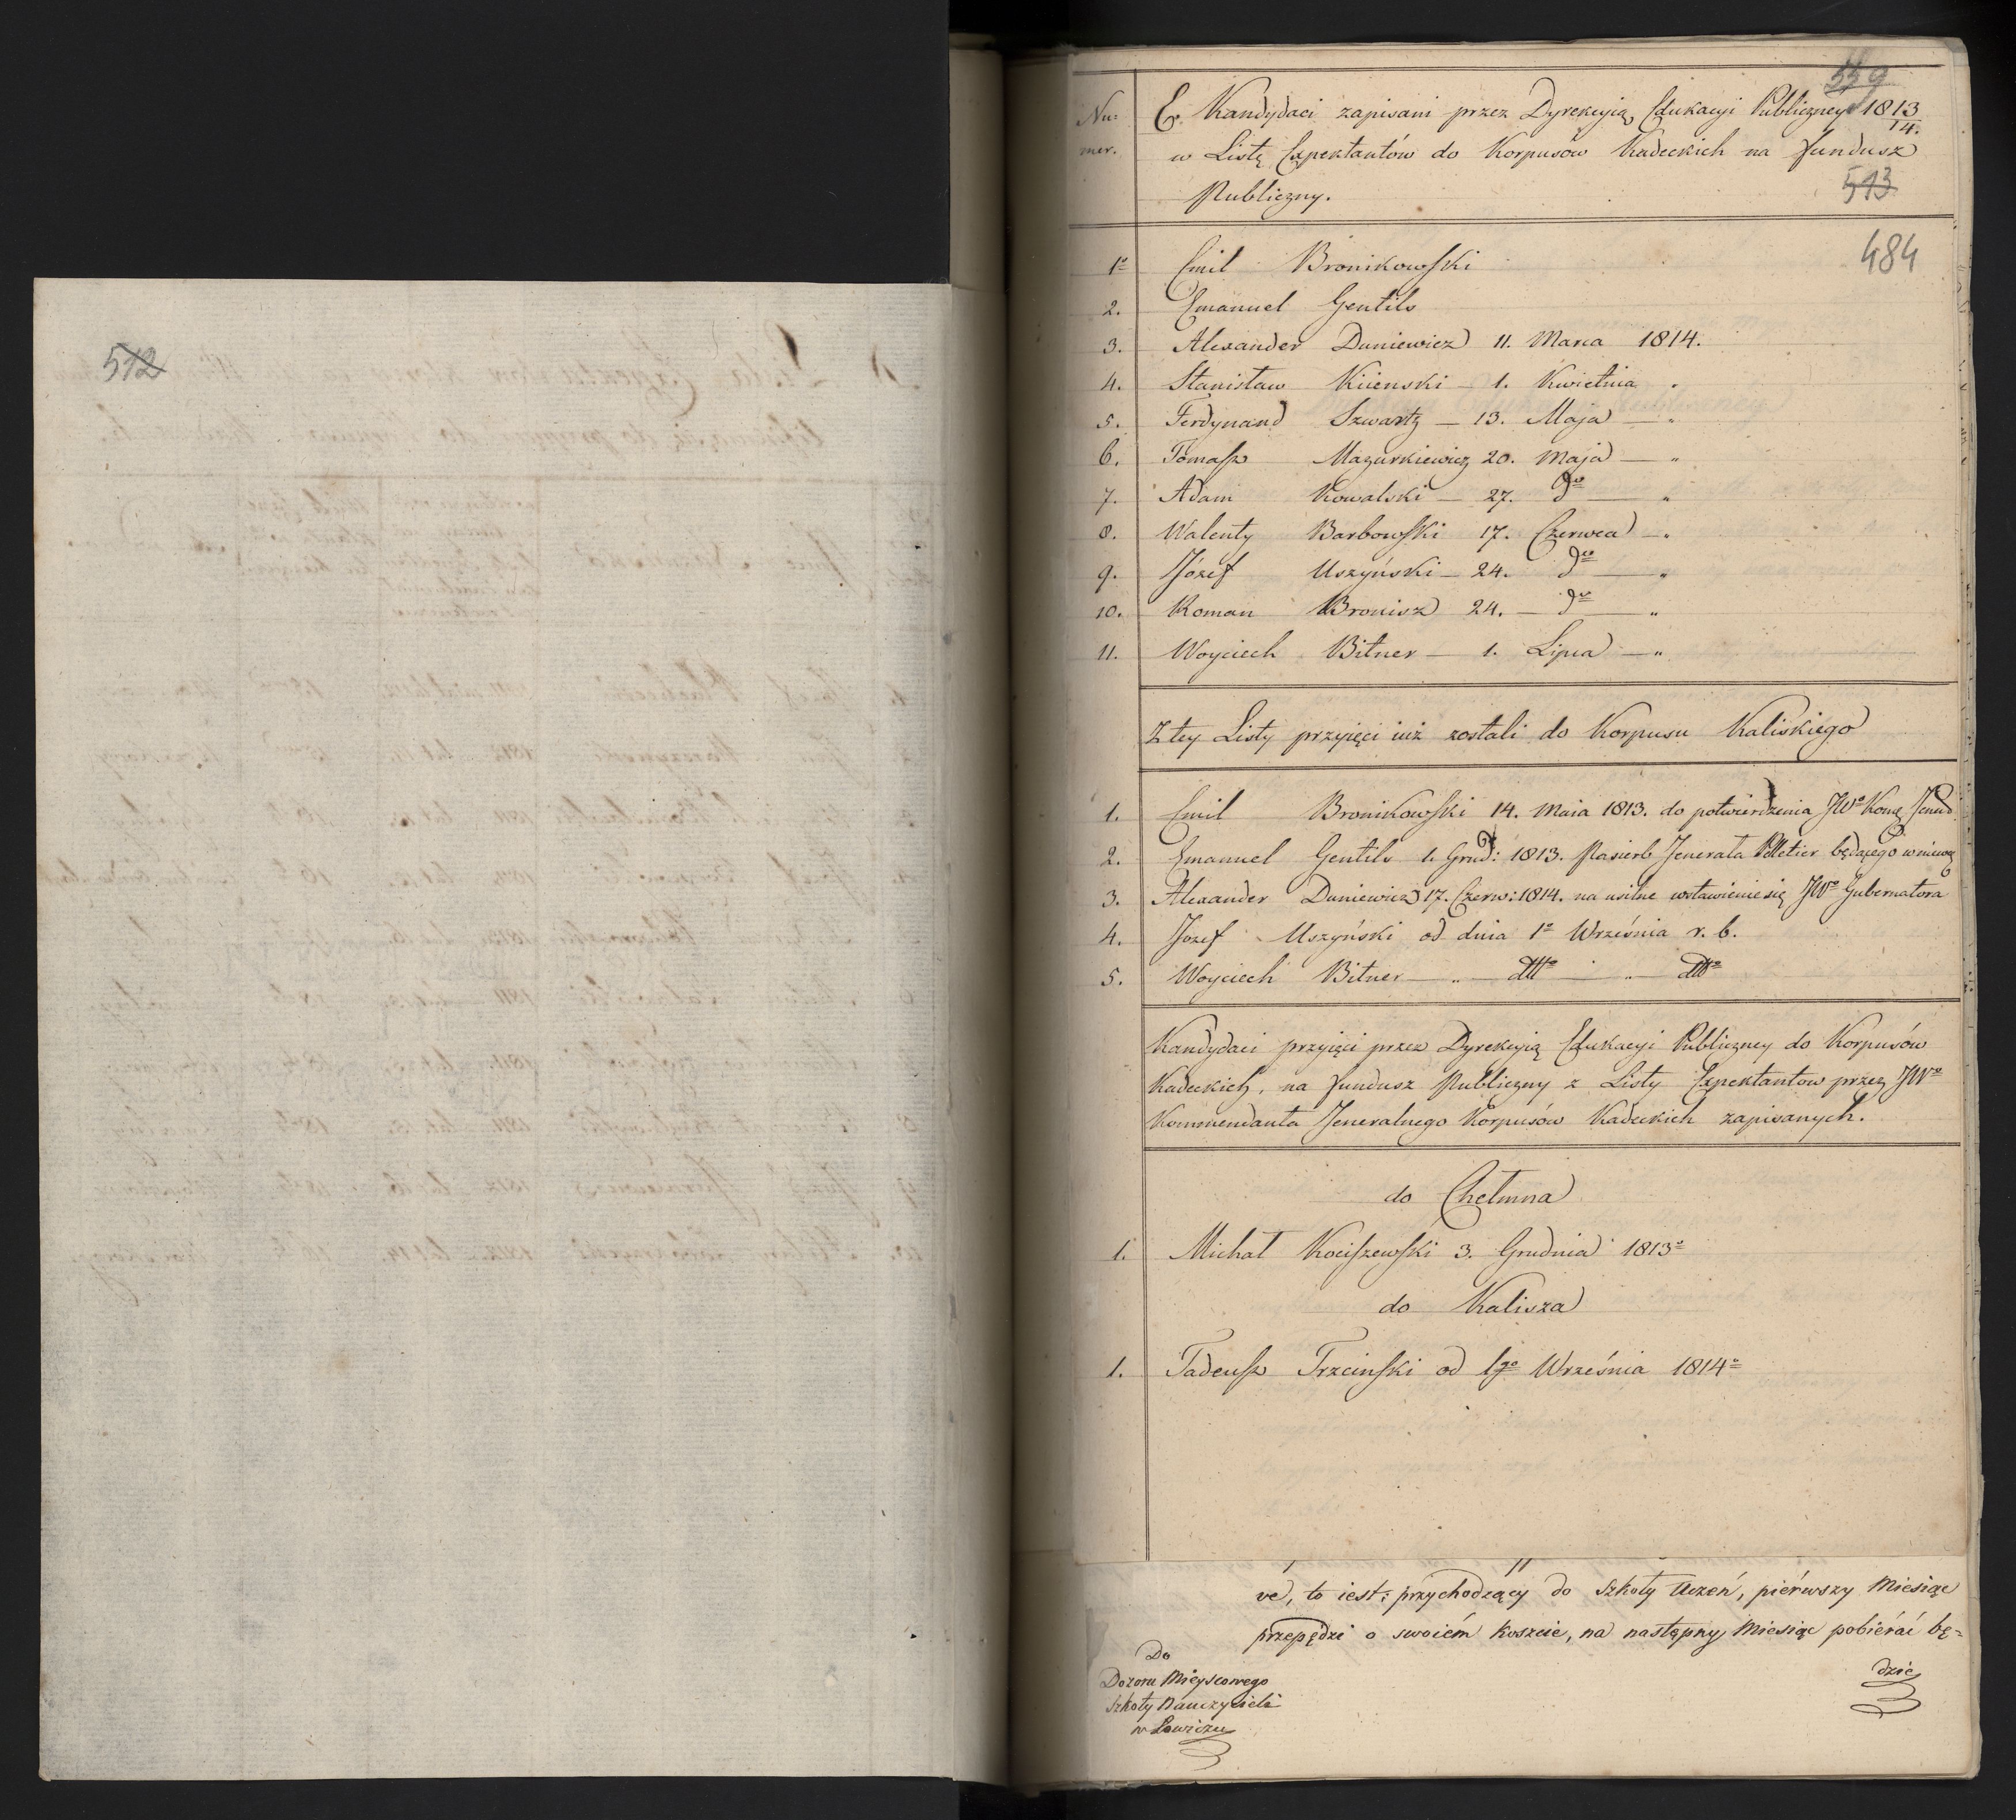 512
559
Nu:
mer.
E. Kandydaci zapisani przez Dyrekcyią Edukacyi Publiczney 1813/14.
w Listę Expektantów do Korpusów Kadeckich na fundusz
Publiczny.
513
484
1º Emil Bronikowski
2. Emanuel Gentils
3. Alexander Duniewicz 11. Marca 1814.
4. Stanisław Kiienski – 1. Kwietnia "
5. Ferdynand Szwartz – 13. Maja – "
6. Tomasz Mazurkiewicz 20. Maja – "
7. Adam Kowalski – 27. dº – "
8. Walenty Barbowski 17. Czerwca – "
9. Józef Uszyński – 24. dº – "
10. Roman Bronisz 24. – dº – "
11. Woyciech Bitner – 1. Lipca – "
Z tey Listy przyięci iuż zostali do Korpusu Kaliskiego
1. Emil Bronikowski 14. Maia 1813. do potwierdzenia JWº Kom:
2. Emanuel Gentils 1. Grud: 1813. Pasierb Jenerała Pelletier będącego w niewoli
3. Alexander Duniewicz 17. Czerw: 1814. na usilne wstawienie się JWº Gubernatora
4. Józef Uszyński od dnia 1º Września r. b.
5. Woyciech Bitner – " dttº – " dttº
Kandydaci przyięci przez Dyrekcyią Edukacyi Publiczney do Korpusów
Kadeckich, na fundusz Publiczny z Listy Expektantow przez JWº
Kommendanta Jeneralnego Korpusów Kadeckich zapisanych.
do Chełmna
1. Michał Kociszewski 3. Grudnia 1813º
do Kalisza
1. Tadeusz Trzcinski od 1go Września 1814º
ve, to iest: przychodzący do Szkoły Uczeń, piérwszy Miesiąc
przepędzi o swoiém koszcie, na następny Miesiąc pobiérać bę=
dzie
Do
Dozoru Mieyscowego
Szkoły Nauczycieli
w Łowiczu